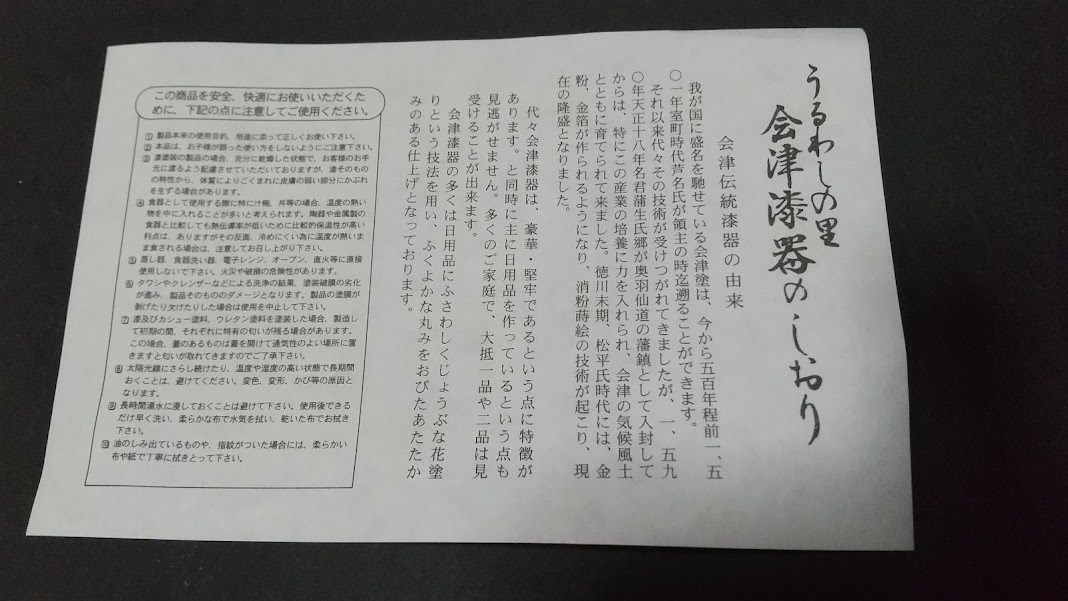 うるわしの里
会津漆器のしおり
会津伝統漆器の由来
我が国に盛名を馳せている会津塗は、今から五百年程前一、五
〇一年室町時代芦名氏が領主の時迄遡ることができます。
それ以来代々その技術が受けつがれてきましたが、一、五九
〇年天正十八年名君蒲生氏郷が奥羽仙道の藩鎮として入封して
からは、特にこの産業の培養に力を入れられ、会津の気候風土
とともに育てられて来ました。徳川末期、松平氏時代には、金
粉、金箔が作られるようになり、消粉蒔絵の技術が起こり、現
在の隆盛となりました。
代々会津漆器は、豪華・堅牢であるという点に特徴が
あります。と同時に主に日用品を作っているという点も
見逃がせません。多くのご家庭で、大抵一品や二品は見
受けることが出来ます。
会津漆器の多くは日用品にふさわしくじょうぶな花塗
りという技法を用い、ふくよかな丸みをおびたあたたか
みのある仕上げとなっております。
この商品を安全、快適にお使いいただくた
めに、下記の点に注意してご使用ください。
① 製品本来の使用目的、用途に添って正しくお使い下さい。
② 本品は、お子様が誤った使い方をしないようにご注意下さい。
③ 漆塗装の製品の場合、充分に乾燥した状態で、お客様のお手
元に渡るよう配慮させていただいておりますが、漆そのもの
の特性から、体質によりごくまれに皮膚の弱い部分にかぶれ
を生ずる場合があります。
④ 食器として使用する際に特に汁椀、丼等の場合、温度の熱い
物を中に入れることが多いと考えられます。陶器や金属製の
食器と比較しても熱伝導率が低いために比較的保温性が高い
利点は、ありますがその反面、冷めにくい為に温度が熱いま
ま食される場合は、注意してお召し上がり下さい。
⑤ 蒸し器、食器洗い器、電子レンジ、オーブン、直火等に直接
使用しないで下さい。火災や破損の危険性があります。
⑥ タワシやクレンザーなどによる洗浄の結果、塗装破損の劣化
が進み、製品そのもののダメージとなります。製品の塗膜が
剥げたり欠けたりした場合は使用を中止して下さい。
⑦ 漆及びカシュー塗料、ウレタン塗料を塗装した場合、製造し
て初期の間、それぞれに特有の匂いが残る場合があります。
この場合、蓋のあるものは蓋を開けて通気性のよい場所に置
きますと匂いが取れてきますのでご了承下さい。
⑧ 太陽光線にさらし続けたり、温度や湿度の高い状態で長期間
おくことは、避けてください。変色、変形、かび等の原因と
なります。
⑨ 長時間湯水に浸しておくことは避けて下さい。使用後できる
だけ早く洗い、柔らかな布で水気を拭い、乾いた布でお拭き
下さい。
⑩ 油のしみ出ているものや、指紋がついた場合には、柔らかい
布や紙で丁寧に拭きとって下さい。